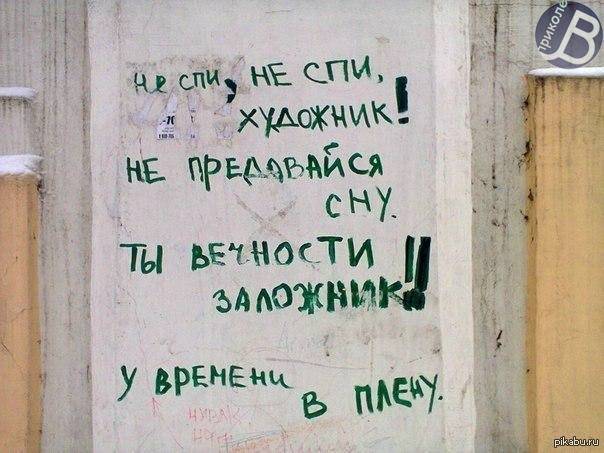 не спи, НЕ СПИ,
ХУДОЖНИК!
НЕ ПРЕДАВАЙСЯ
СНУ.
ТЫ ВЕЧНОСТИ
ЗАЛОЖНИК!!
У ВРЕМЕНИ
В ПЛЕНУ.
приколе
В
pikabu.ru